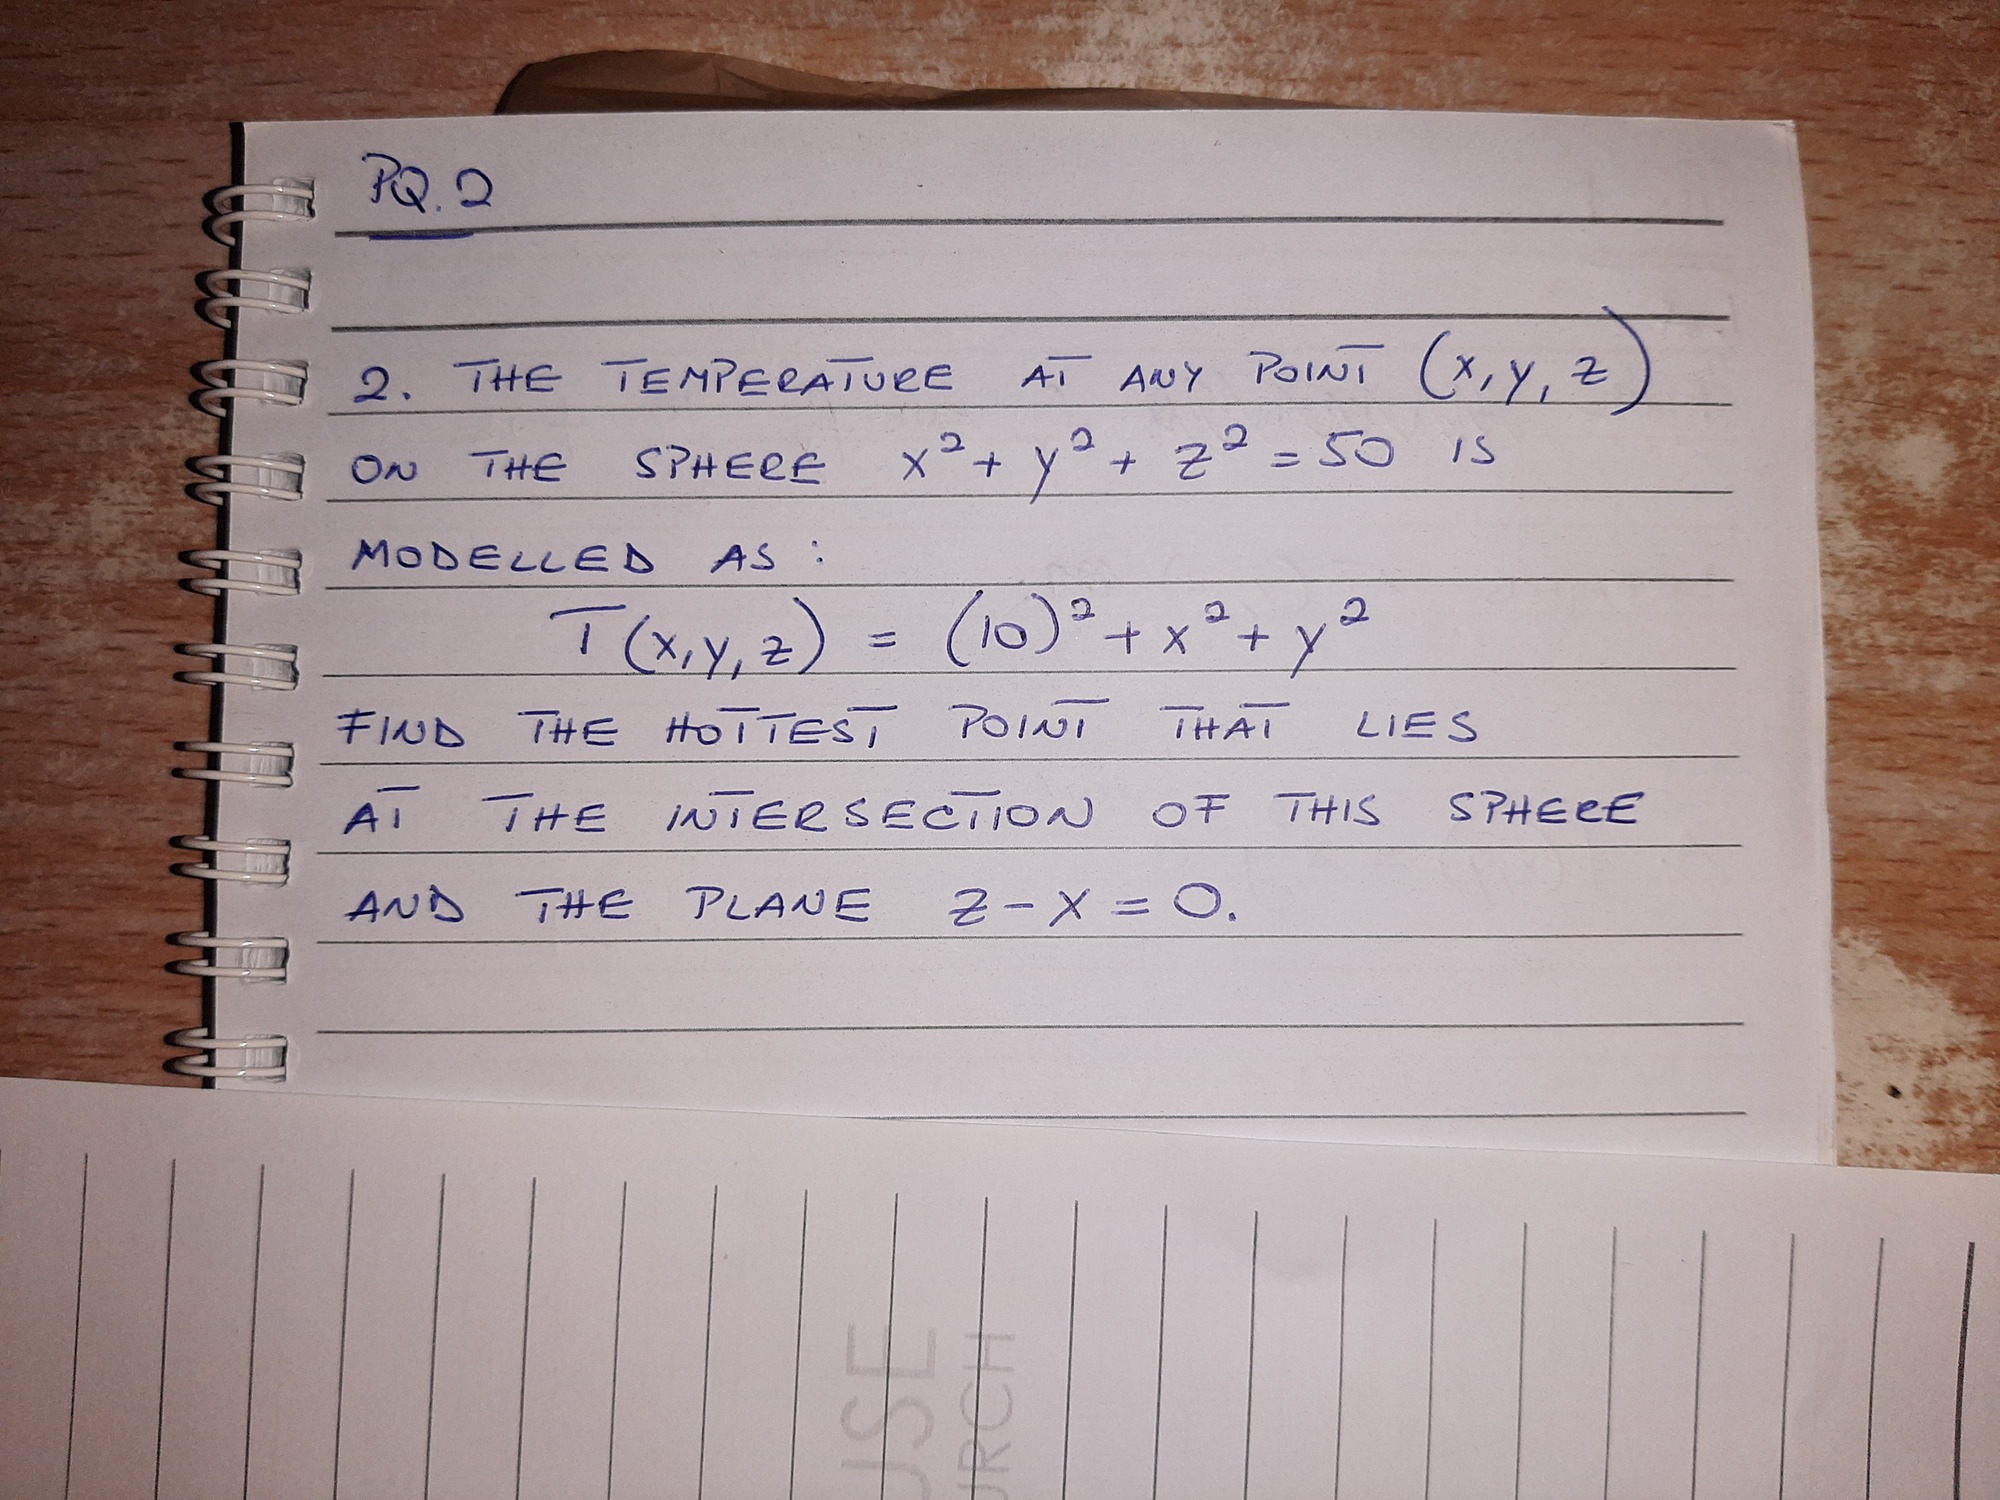 PQ.2
2. THE TEMPERATURE AT ANY POINT (x, y, z)
ON THE SPHERE x² + y² + z² = 50 IS
MODELLED AS :
T(x, y, z) = (10)² + x² + y²
FIND THE HOTTEST POINT THAT LIES
AT THE INTERSECTION OF THIS SPHERE
AND THE PLANE z - x = 0.
USE
URCH